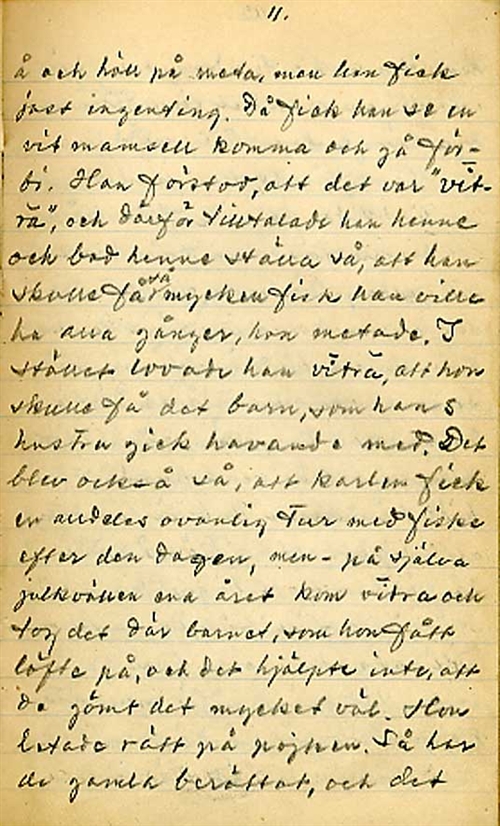 11.
å och höll på meta, men han fick
just ingenting. Då fick han se en
vit mamsell komma och gå för-
bi. Han förstod, att det var "vit-
ra", och därför tilltalade han henne
och bad henne ställa så, att han
skulle få så mycken fisk han ville
ha alla gånger, han metade. I
stället lovade han vitra, att hon
skulle få det barn, som hans
hustru gick havande med. Det
blev också så, att karlen fick
en alldeles ovanlig tur med fiske
efter den dagen, men - på själva
julkvällen ena året kom vitra och
tog det där barnet, som hon fått
löfte på, och det hjälpte inte, att
de gömt det mycket väl. Hon
letade rätt på pojken. Så har
de gamla berättat, och det